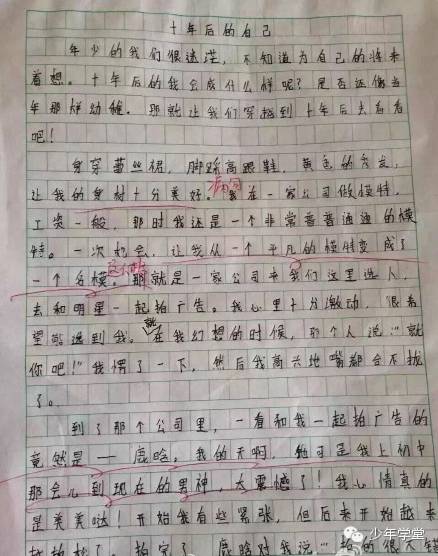 十年后的自己
年少的我们很迷茫，不知道为自己的将来
着想。十年后的我会成什么样呢？是否还像当
年那样幼稚。那就让我们穿越到十年后去看看
吧！
身穿蕾丝裙，脚踩高跟鞋，黄色的秀发，
让我的身材十分美好。我在一家公司做模特，
病句
工资一般，那时我还是一个非常普普通通的模
特。一次机会，让我从一个平凡的模特变成了
一个名模。那就是一家公司来我们这里选人，
去和明星一起拍广告。我心里十分激动，很希
望能选到我。就在我幻想的时候，那个人说："就
你吧！"我愣了一下，然后我高兴地嘴都合不拢
了。
到了那个公司里，一看和我一起拍广告的
竟然是——鹿晗。我的天啊，他可是我上初中
那会儿到现在的男神，太震憾了！我心情真的
是美美哒！开始我有些紧张，但后来开始越来
拍完了，鹿晗对我说："你
少年学堂